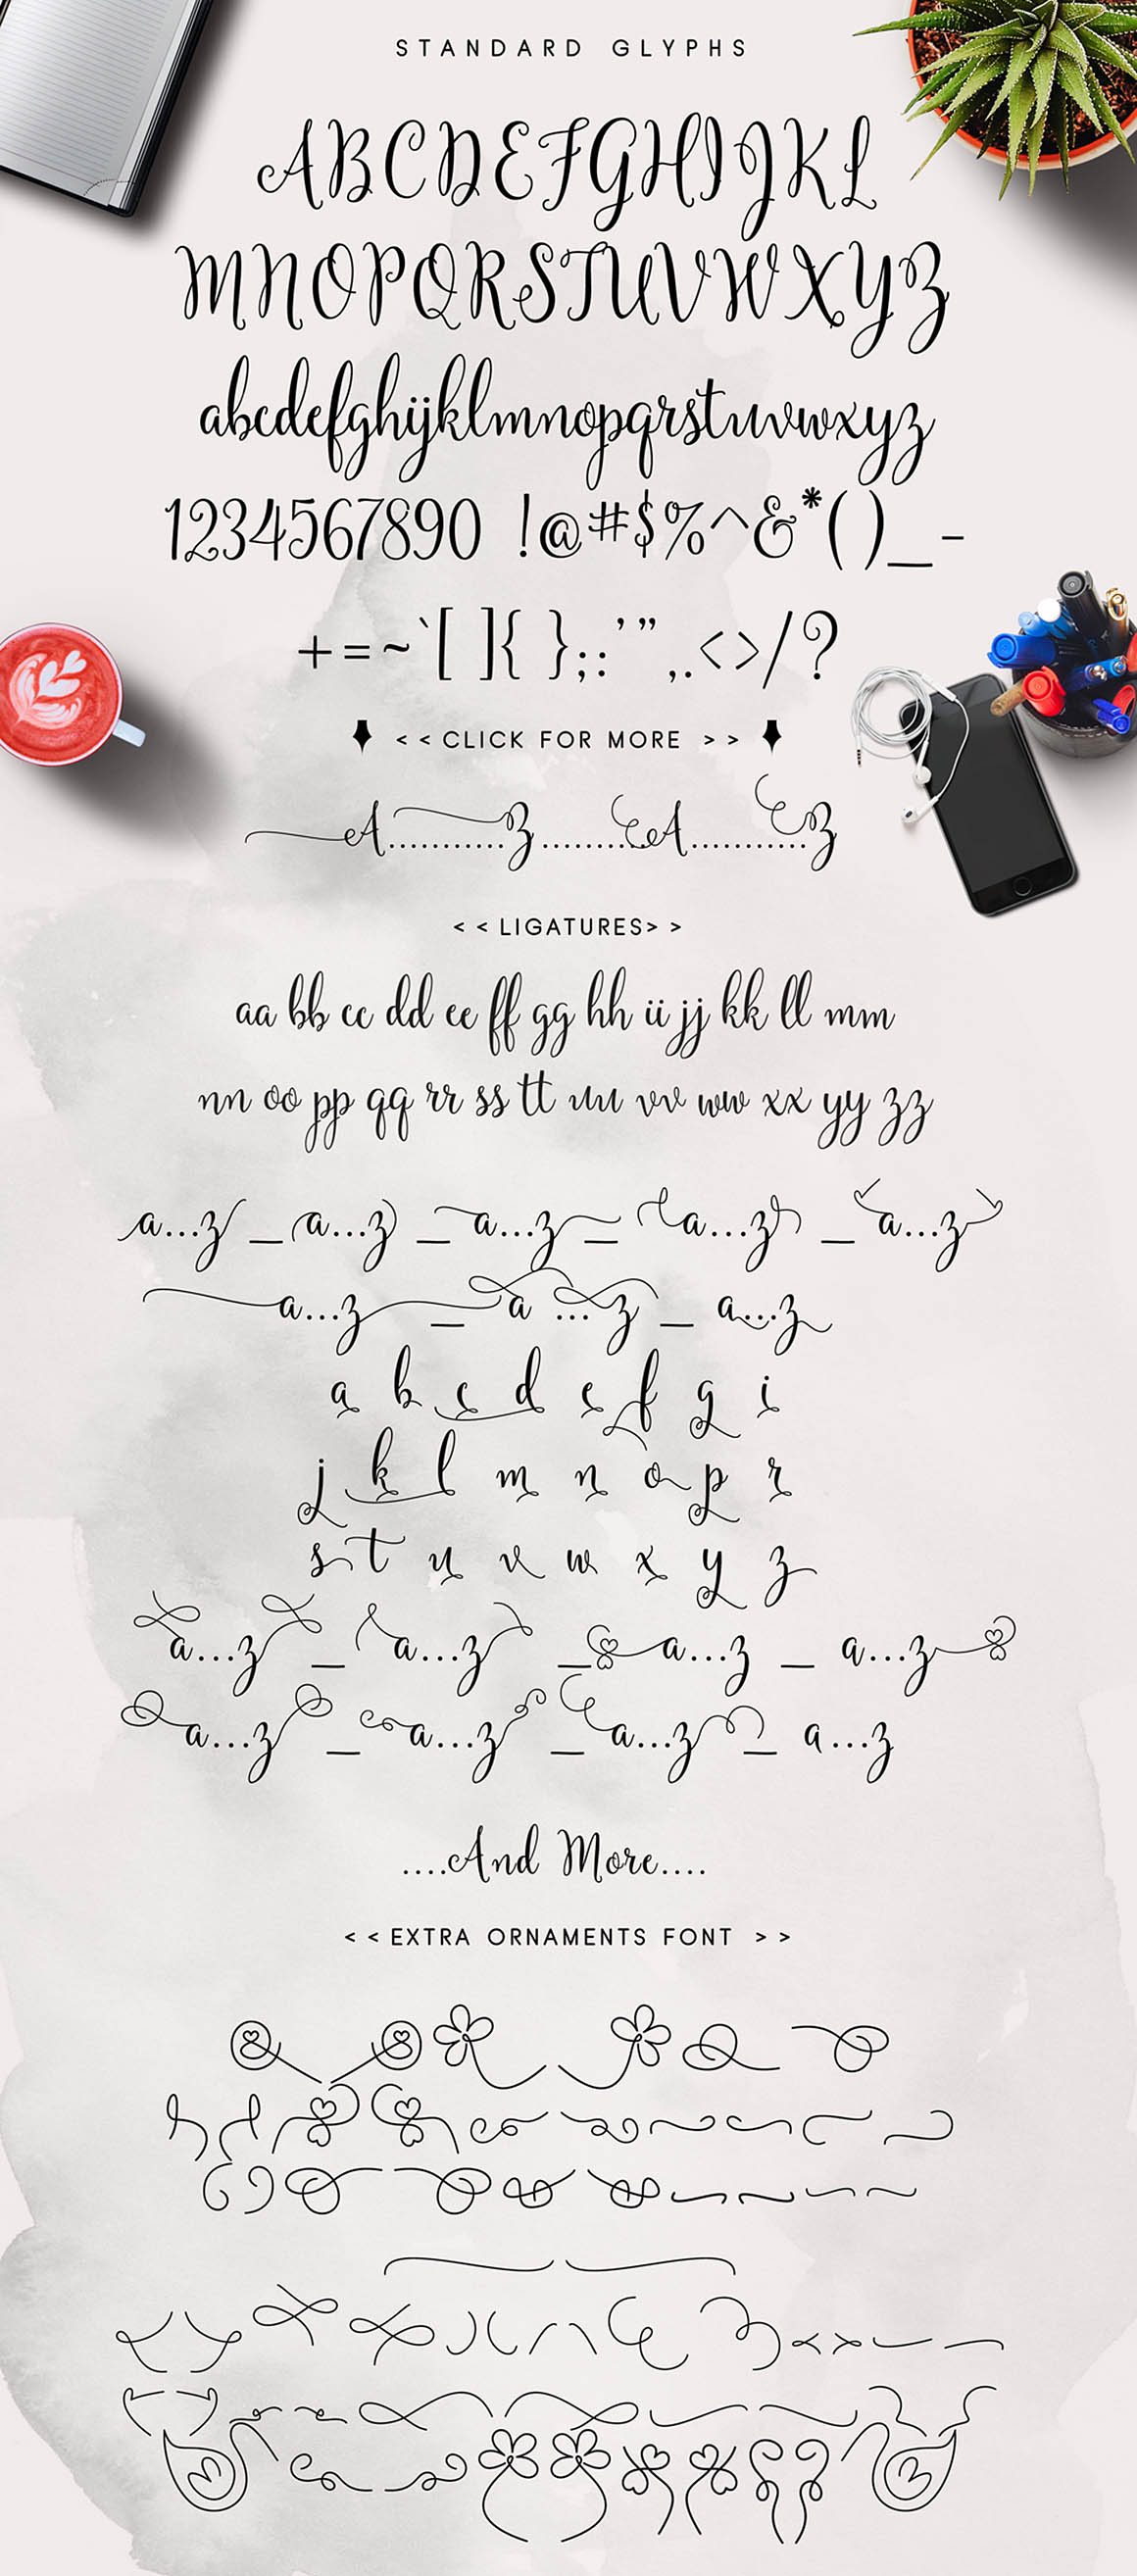 STANDARD GLYPHS
ABCDEFGHIJKL
MNOPQRSTUVWXYZ
abcdefghijklmnopqrstuvwxyz
1234567890 !@#$%^&*()_-
+=~`[ ]{ };:'",.<>/?
<<CLICK FOR MORE >>
A...........Z.........A...........Z
<<LIGATURES>>
aa bb cc dd ee ff gg hh ii jj kk ll mm
nn oo pp qq rr ss tt uu vv ww xx yy zz
a...z _ a...z _ a...z _ a...z _ a...z
a...z _ a...z _ a...z
a b c d e f g i
j k l m n o p r
s t u v w x y z
a...z _ a...z _ a...z _ a...z
a...z _ a...z _ a...z _ a...z
....And More....
<<EXTRA ORNAMENTS FONT >>